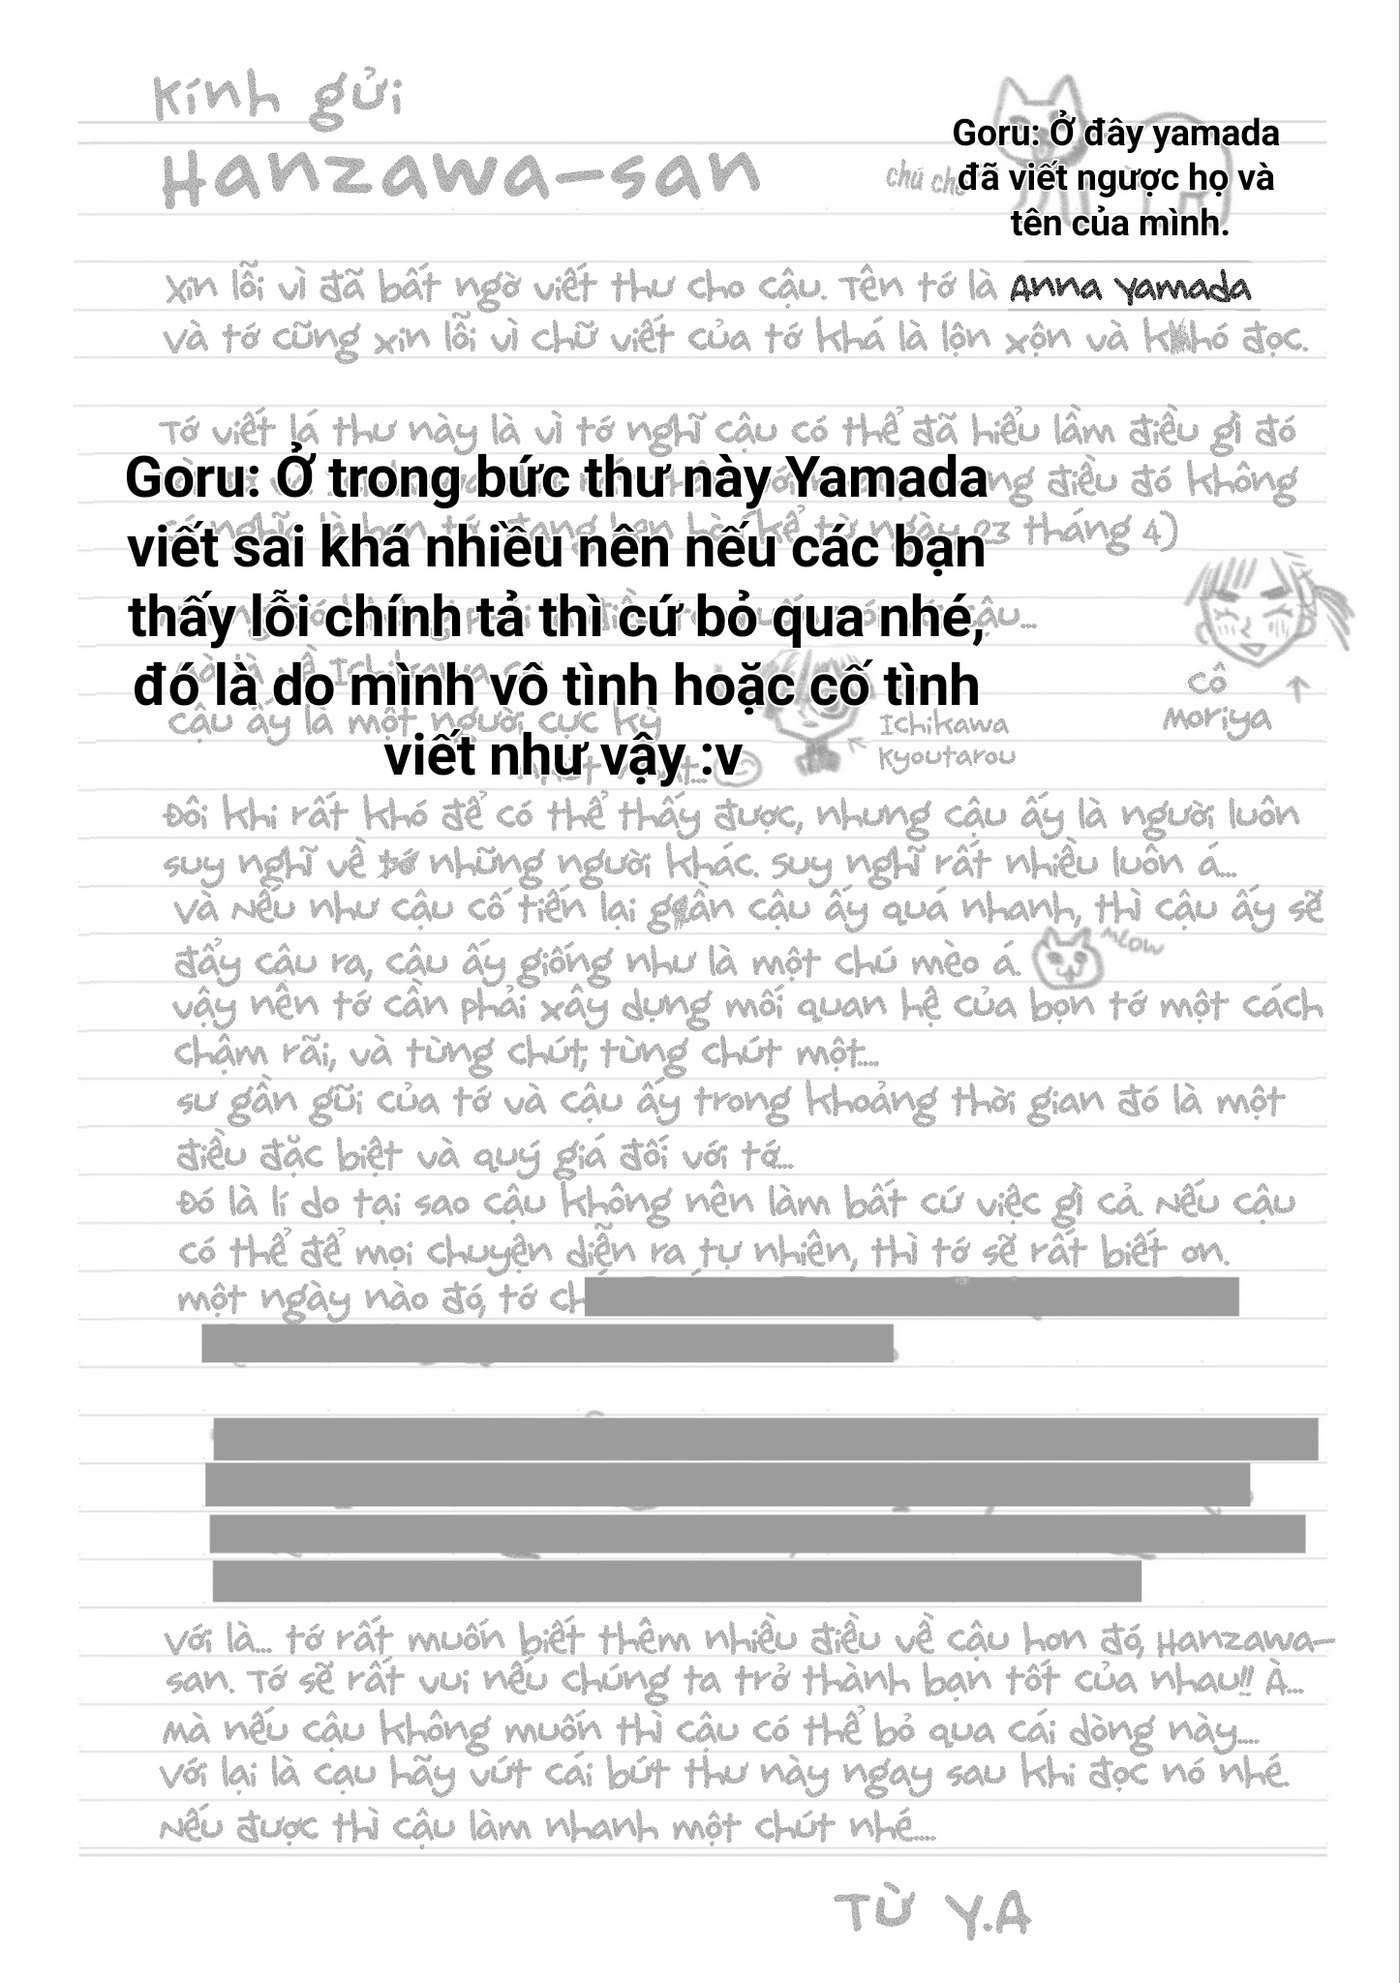 Kính gửi
Hanzawa-san
chú chó
Goru: Ở đây yamada
đã viết ngược họ và
tên của mình.
Xin lỗi vì đã bất ngờ viết thư cho cậu. Tên tớ là Anna Yamada
và tớ cũng xin lỗi vì chữ viết của tớ khá là lộn xộn và khó đọc.
Tớ viết lá thư này là vì tớ nghĩ cậu có thể đã hiểu lầm điều gì đó
Goru: Ở trong bức thư này Yamada
điều đó không
kể từ ngày 03 tháng 4)
viết sai khá nhiều nên nếu các bạn
thấy lỗi chính tả thì cứ bỏ qua nhé,
đó là do mình vô tình hoặc cố tình
Cô
Moriya
cậu ấy là một người cực kỳ
Ichikawa
Kyoutarou
viết như vậy :v
Đôi khi rất khó để có thể thấy được, nhưng cậu ấy là người luôn
suy nghĩ về tớ những người khác. Suy nghĩ rất nhiều luôn á...
và Nếu như cậu cố tiến lại gần cậu ấy quá nhanh, thì cậu ấy sẽ
đẩy câu ra, cậu ấy giống như là một chú mèo á.
meow
vậy nên tớ cần phải xây dựng mối quan hệ của bọn tớ một cách
chậm rãi, và từng chút, từng chút một...
sư gần gũi của tớ và cậu ấy trong khoảng thời gian đó là một
điều đặc biệt và quý giá đối với tớ...
Đó là lí do tại sao cậu không nên làm bất cứ việc gì cả. Nếu cậu
có thể để mọi chuyện diễn ra tự nhiên, thì tớ sẽ rất biết ơn.
một ngày nào đó, tớ
Với là... tớ rất muốn biết thêm nhiều điều về cậu hơn đó, Hanzawa-
san. Tớ sẽ rất vui nếu chúng ta trở thành bạn tốt của nhau!! À...
Mà nếu cậu không muốn thì cậu có thể bỏ qua cái dòng này....
Với lại là cạu hãy vứt cái bứt thư này ngay sau khi đọc nó nhé.
Nếu được thì cậu làm nhanh một chút nhé....
Từ Y.A